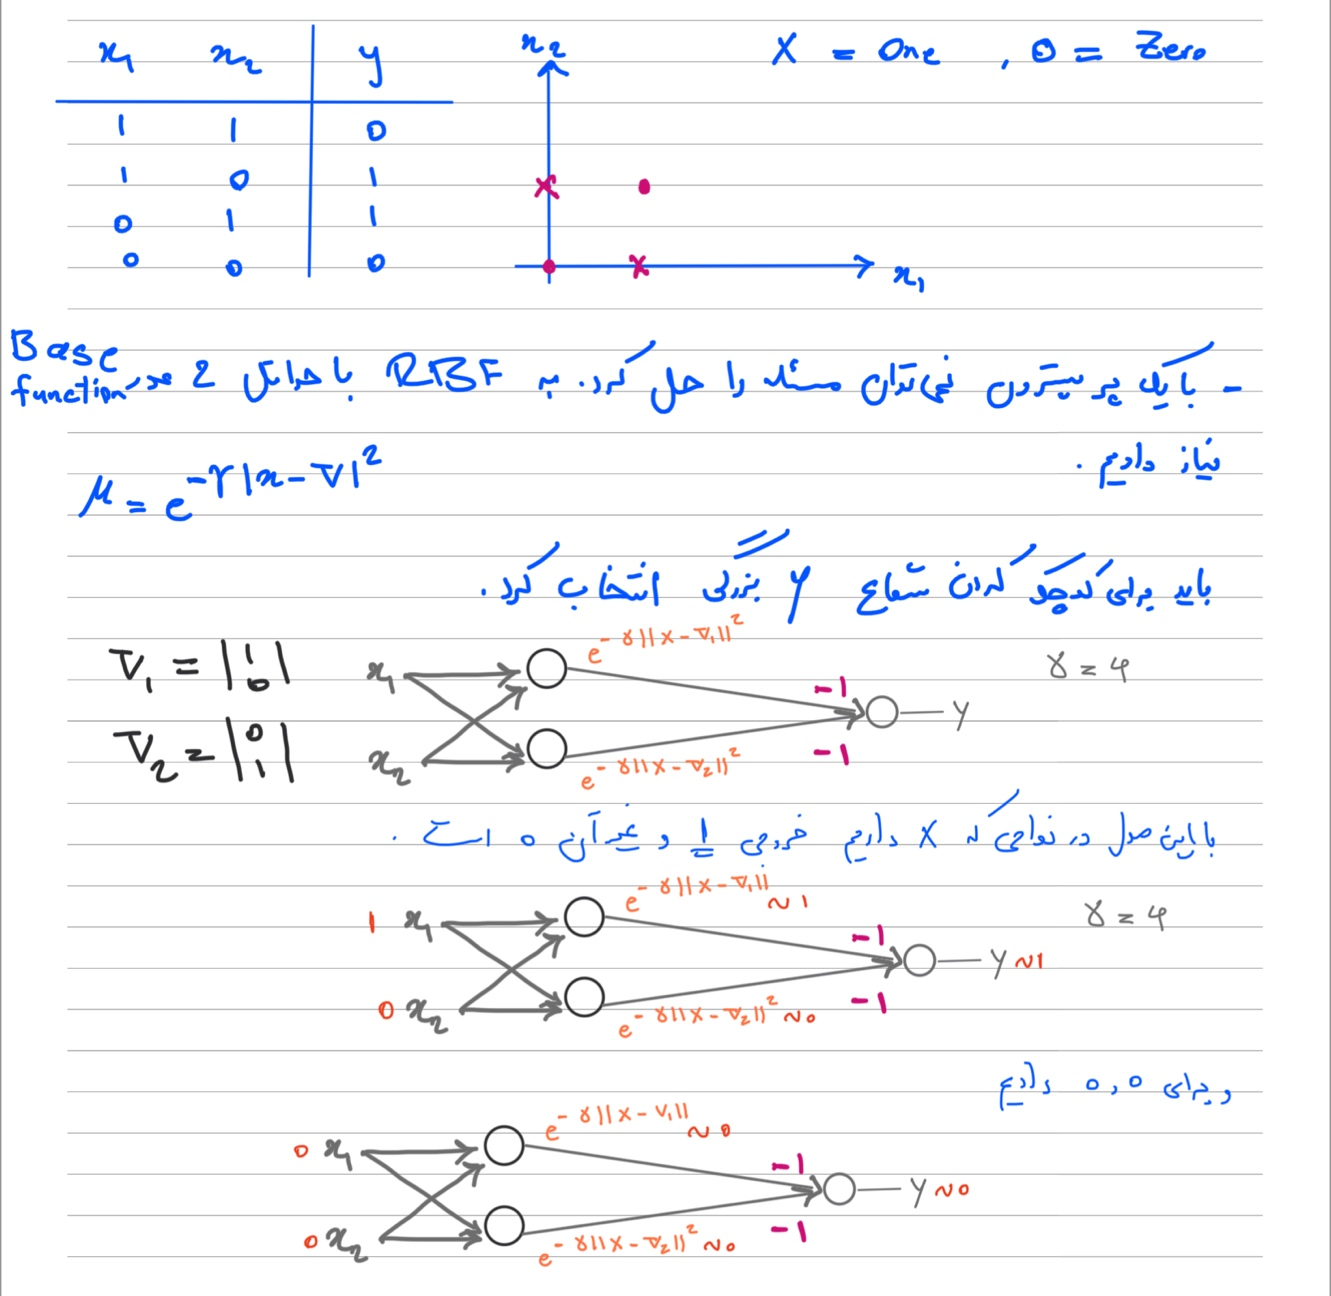 x1 x2 y
1 1 0
1 0 1
0 1 1
0 0 0
x2
x1
X = One , 0 = Zero
- با یک پرسپترون نمی‌توان مسئله را حل کرد. به RBF با حداقل 2 عدد Base function
نیاز داریم .
μ = e^-γ|x-V|^2
باید برای کوچک کردن شعاع γ بزرگی انتخاب کرد.
V1 = |1 0|
V2 = |0 1|
x1 e^-γ||x-V1||^2 -1 γ = 4
y
x2 e^-γ||x-V2||^2 -1
با این مدل در نواحی که X داریم خروجی 1 و غیر آن 0 است .
1 x1 e^-γ||x-V1|| ~1 -1 γ = 4
y ~1
0 x2 e^-γ||x-V2||^2 ~0 -1
و برای 0,0 داریم
0 x1 e^-γ||x-V1|| ~0 -1
y ~0
0 x2 e^-γ||x-V2||^2 ~0 -1